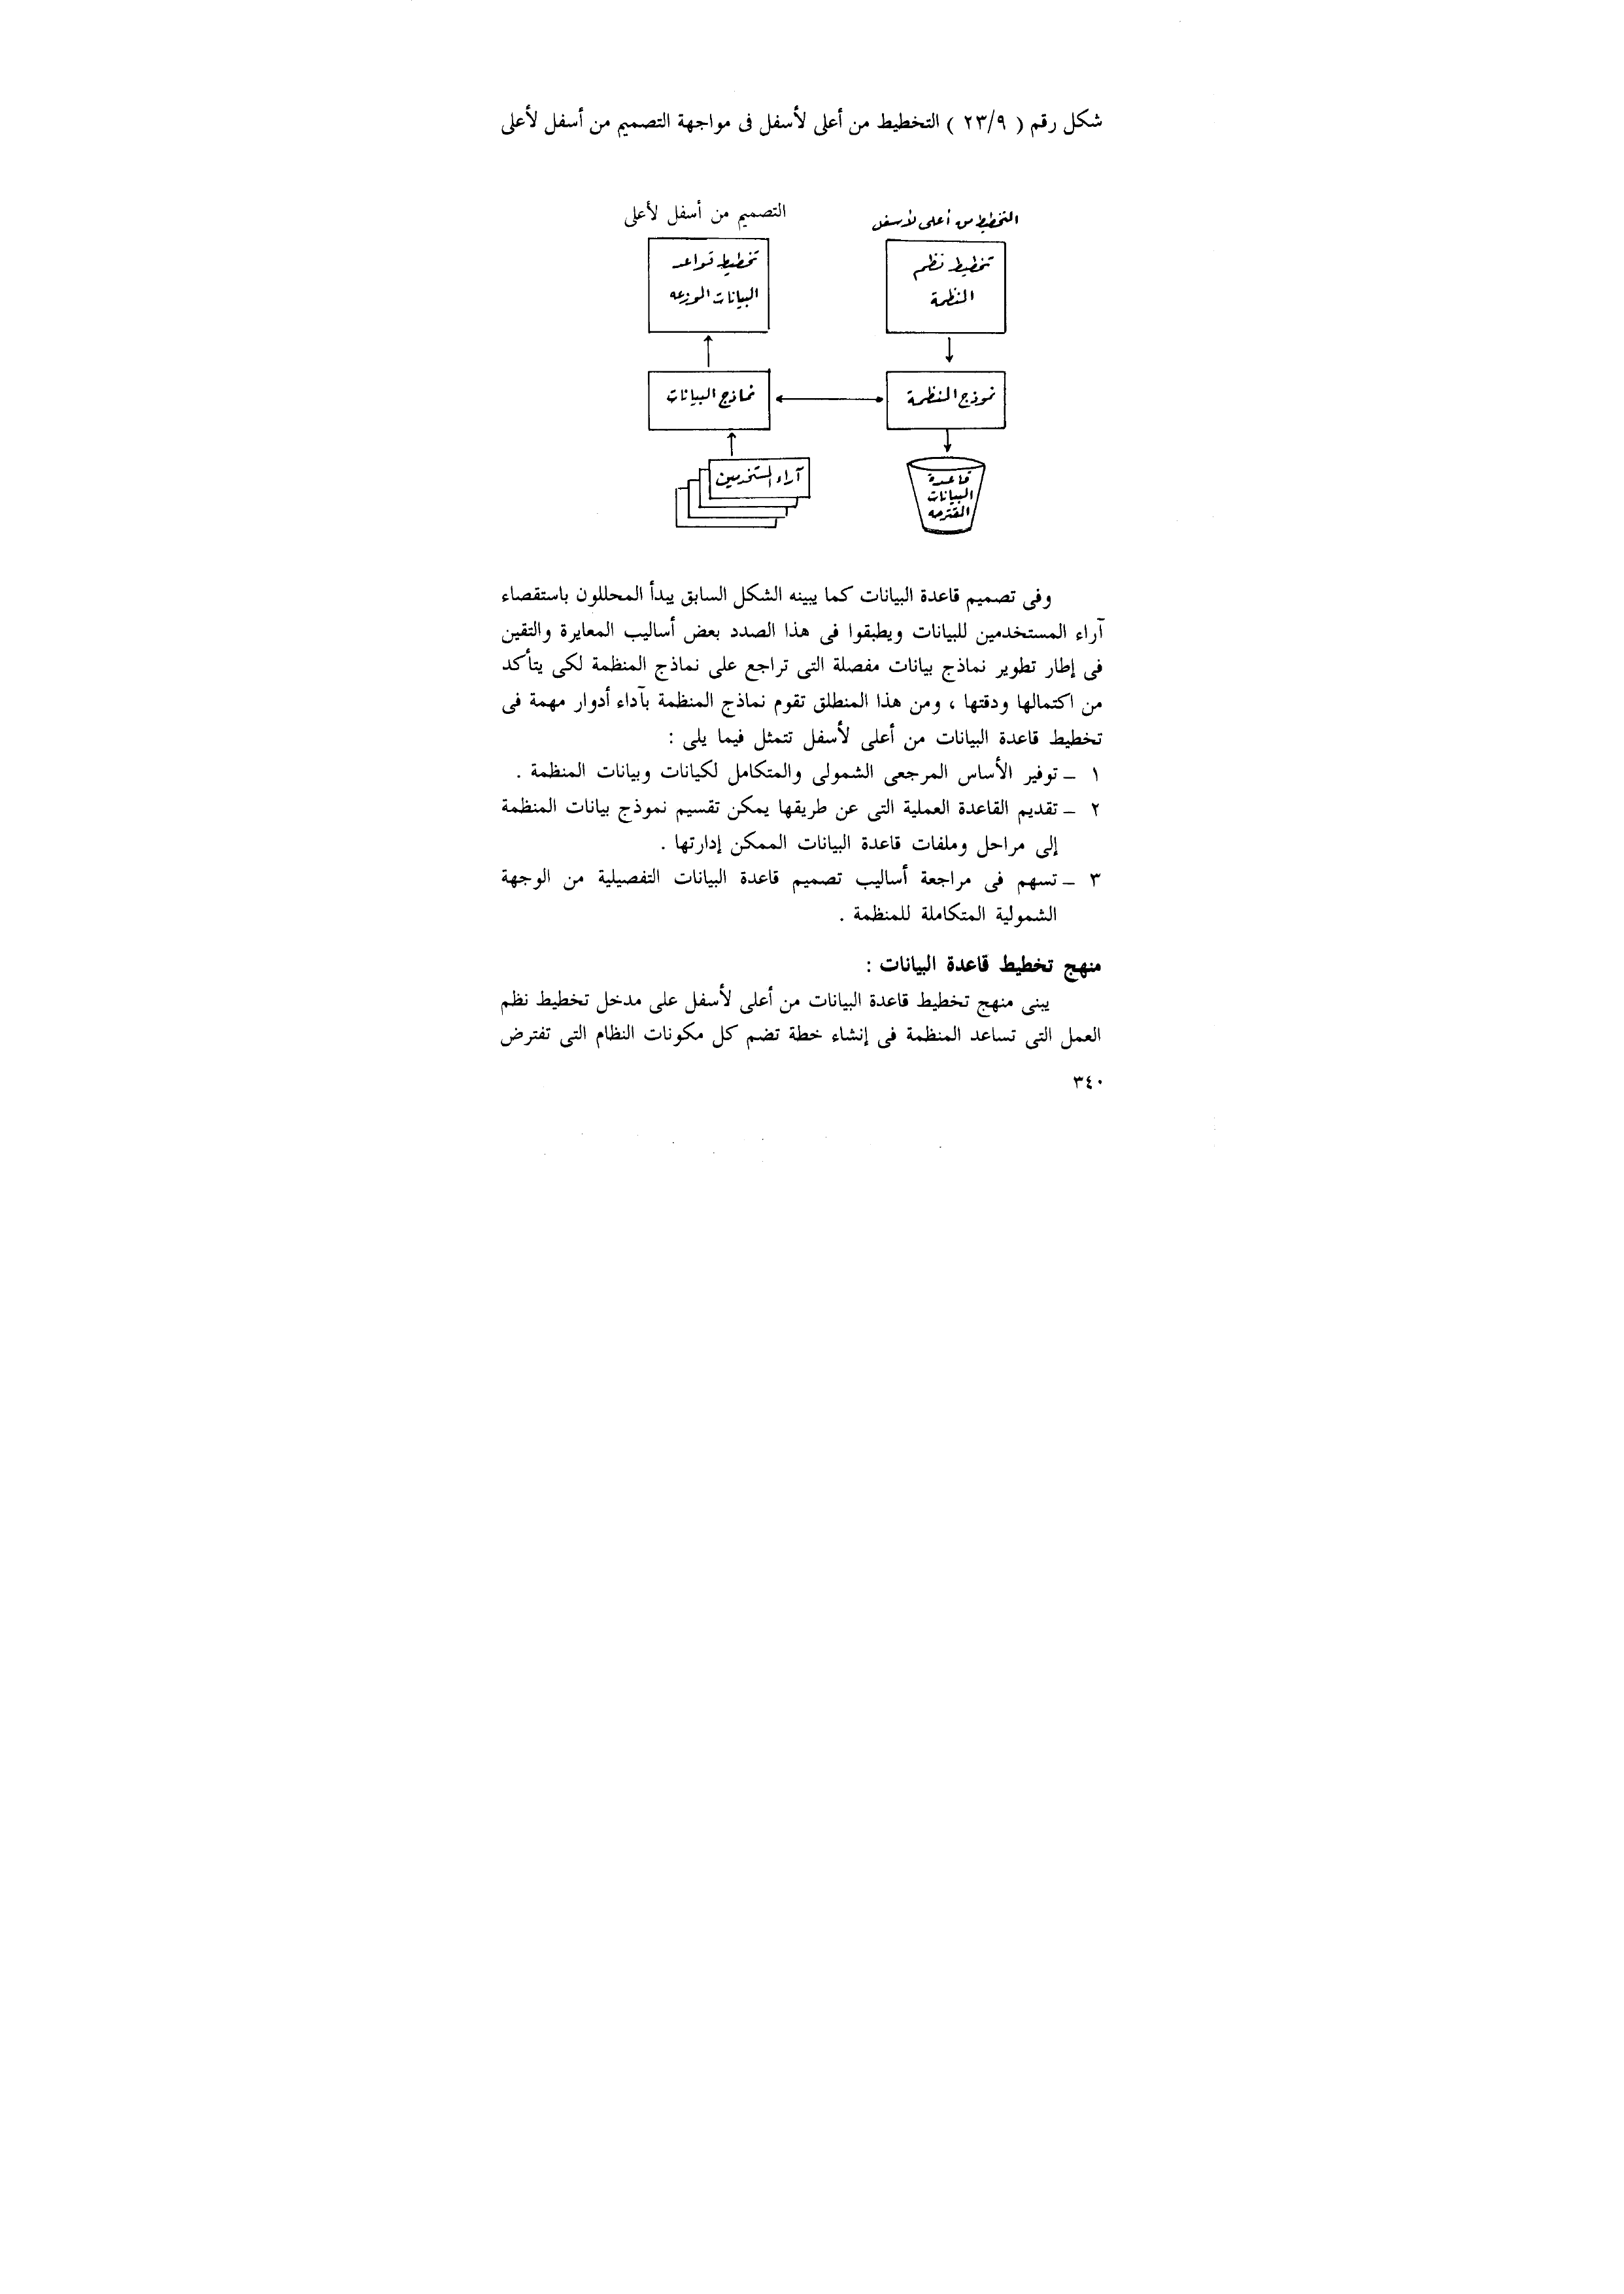 شكل رقم ( ٢٣/٩ ) التخطيط من أعلى لأسفل فى مواجهة التصميم من أسفل لأعلى
التخطيط من أعلى لأسفل
التصميم من أسفل لأعلى
تخطيط نظم
المنظمة
تخطيط قواعد
البيانات الموزعه
نموذج المنظمة
نماذج البيانات
قاعدة
البيانات
المقترحه
آراء المستخدمين
وفى تصميم قاعدة البيانات كما يبينه الشكل السابق يبدأ المحللون باستقصاء
آراء المستخدمين للبيانات ويطبقوا فى هذا الصدد بعض أساليب المعايرة والتقين
فى إطار تطوير نماذج بيانات مفصلة التى تراجع على نماذج المنظمة لكى يتأكد
من اكتمالها ودقتها ، ومن هذا المنطلق تقوم نماذج المنظمة بآداء أدوار مهمة فى
تخطيط قاعدة البيانات من أعلى لأسفل تتمثل فيما يلى :
١ ــ توفير الأساس المرجعى الشمولى والمتكامل لكيانات وبيانات المنظمة .
٢ ــ تقديم القاعدة العملية التى عن طريقها يمكن تقسيم نموذج بيانات المنظمة
إلى مراحل وملفات قاعدة البيانات الممكن إدارتها .
٣ ــ تسهم فى مراجعة أساليب تصميم قاعدة البيانات التفصيلية من الوجهة
الشمولية المتكاملة للمنظمة .
منهج تخطيط قاعدة البيانات :
يبنى منهج تخطيط قاعدة البيانات من أعلى لأسفل على مدخل تخطيط نظم
العمل التى تساعد المنظمة فى إنشاء خطة تضم كل مكونات النظام التى تفترض
٣٤٠